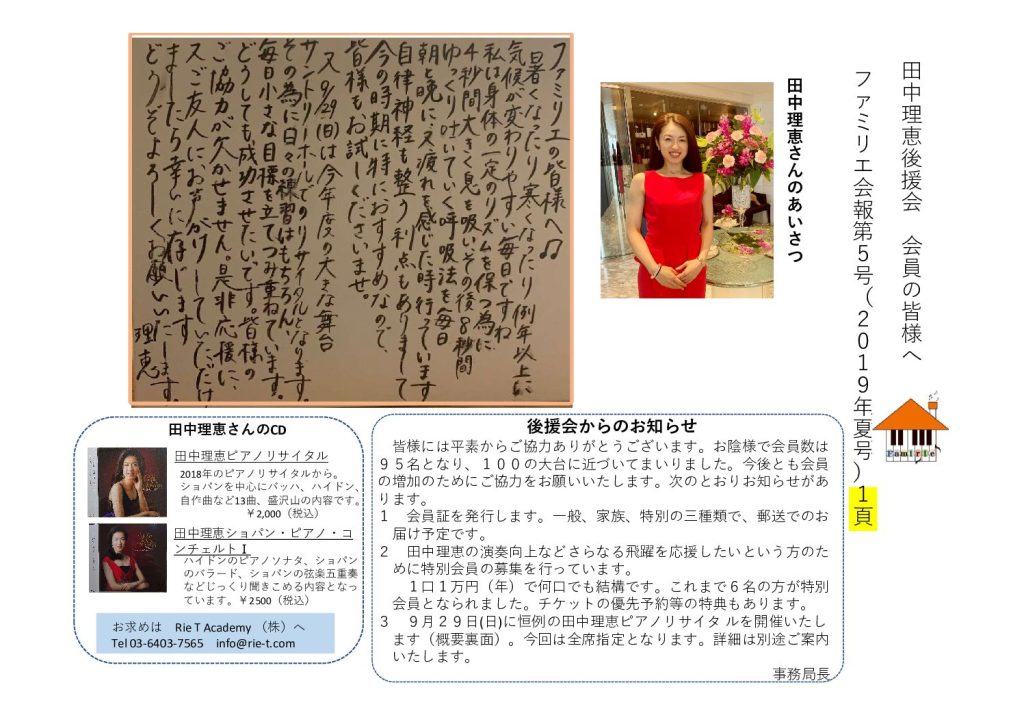 田中理恵後援会　会員の皆様へ
ファミリエ会報第５号（２０１９年夏号）１頁
Famirie
田中理恵さんのあいさつ
ファミリエの皆様へ♫
暑くなったり寒くなったり例年以上に
気候が変わりやすい毎日ですね
私は身体の一定のリズムを保つ為に
４秒間大きく息を吸いその後８秒間
ゆっくり吐いていく呼吸法を毎日
朝と晩に、又疲れを感じた時行っています
自律神経も整う利点もありまして
今の時期に特におすすめなので、
皆様もお試しくださいませ。
又 9/29(日)は今年度の大きな舞台
サントリーホールでのリサイタルとなります。
その為に日々の練習はもちろん、
毎日小さな目標を立てつみ重ねています。
どうしても成功させたいです。皆様の
ご協力が欠かせません。是非応援に、
又ご友人にお声がけしていただけ
ましたら幸いに存じます
どうぞよろしくお願いいたします。
理恵
田中理恵さんのCD
田中理恵ピアノリサイタル
2018年のピアノリサイタルから。
ショパンを中心にバッハ、ハイドン、
自作曲など13曲、盛沢山の内容です。
￥2,000（税込）
田中理恵ショパン・ピアノ・コ
ンチェルトⅠ
ハイドンのピアノソナタ、ショパン
のバラード、ショパンの弦楽五重奏
などじっくり聞きこめる内容となっ
ています。￥2500（税込）
お求めは　Rie T Academy （株）へ
Tel 03-6403-7565　info@rie-t.com
後援会からのお知らせ
皆様には平素からご協力ありがとうございます。お陰様で会員数は
９５名となり、１００の大台に近づいてまいりました。今後とも会員
の増加のためにご協力をお願いいたします。次のとおりお知らせがあ
ります。
１　会員証を発行します。一般、家族、特別の三種類で、郵送でのお
届け予定です。
２　田中理恵の演奏向上などさらなる飛躍を応援したいという方のた
めに特別会員の募集を行っています。
１口１万円（年）で何口でも結構です。これまで６名の方が特別
会員となられました。チケットの優先予約等の特典もあります。
３　９月２９日(日)に恒例の田中理恵ピアノリサイタルを開催いたし
ます（概要裏面）。今回は全席指定となります。詳細は別途ご案内
いたします。
事務局長